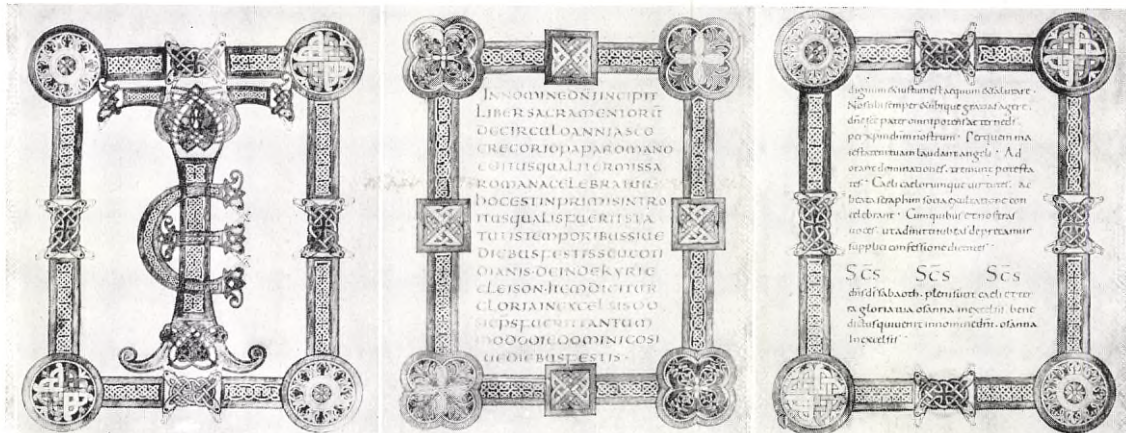 TE
INNOMINE DNI INCIPIT
LIBER SACRAMENTORU
DE CIRCULO ANNI A SCO
GREGORIO PAPA ROMANO
EDITUS QUALITER MISSA
ROMANA CELEBRATUR
HOC EST IN PRIMIS INTRO
ITUS QUALIS FUERIT STA
TUTIS TEMPORIBUS SIUE
DIEBUS FESTIS SEU COTI
DIANIS · DEINDE KYRIE
ELEISON · ITEM DICITUR
GLORIA IN EXCELSIS DO
SI EPS FUERIT TANTUM
MODO DIE DOMINICO SI
UE DIEBUS FESTIS ·
dignum & iustum est aequum & salutare ·
Nos tibi semper & ubique gratias agere ·
dne sce pater omnipotens aeterne ds
per xpm dnm nostrum · Per quem ma
iestatem tuam laudant angeli · Ad
orant dominationes tremunt potesta
tes · Caeli caelorumque uirtutes ac
beata seraphim socia exultatione con
celebrant · Cum quibus et nostras
uoces ut admitti iubeas deprecamur
supplici confessione dicentes ·
Scs Scs Scs
dns ds sabaoth · pleni sunt caeli et ter
ra gloria tua osanna in excelsis · bene
dictus qui uenit in nomine dni · osanna
In excelsis ·